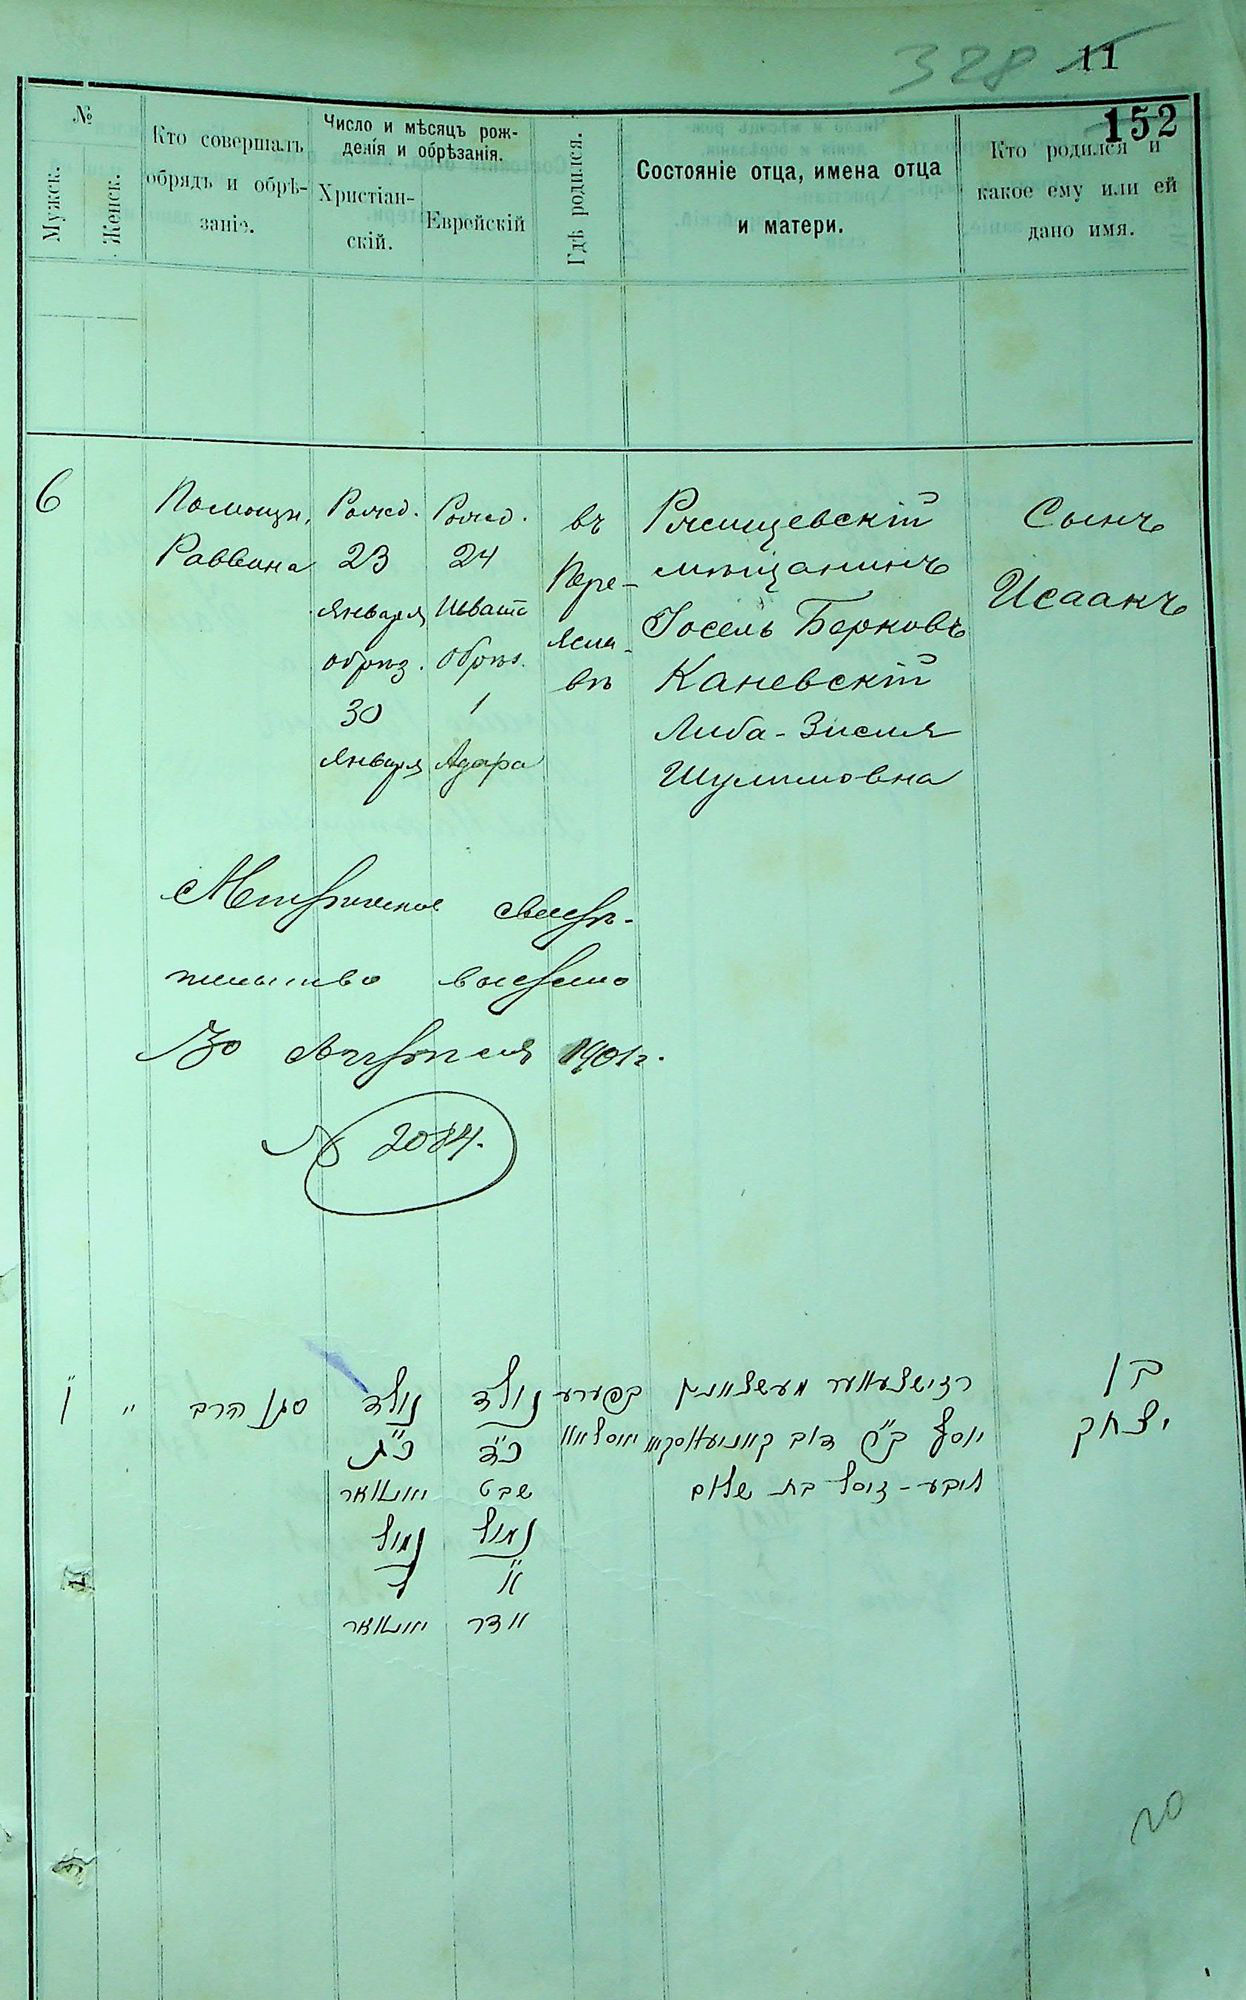 328 11
152
№
Мужск.
Женск.
Кто совершалъ
обрядъ и обрѣ-
заніе.
Число и мѣсяцъ рож-
денія и обрѣзанія.
Христіан-
скій.
Еврейскій
Гдѣ родился.
Состояніе отца, имена отца
и матери.
Кто родился и
какое ему или ей
дано имя.
6
Помощн.
Раввина
Рожд.
23
Января
обрѣз.
30
Января
Рожд.
24
Шватъ
Обрѣз.
1
Адара
въ
Пере-
ясла-
вѣ
Ржищевскій
мѣщанинъ
Іосель Берковъ
Каневскій
Либа-Зисля
Шулимовна
Сынъ
Исаакъ
Метрическое свидѣ-
тельство выдано
30 1901 г.
№ 2084.
ו
"
סגן הרב
נולד
כ"ג
יאנואר
נמול
ל'
יאנואר
נולד
כ"ד
שבט
נמול
א'
אדר
בפערע
יאסלאוו
רזישצעווער מעשצאנין
יוסף ב"ר דוב קאניעווסקי
ליבע-זיסל בת שלום
בן
יצחק
20